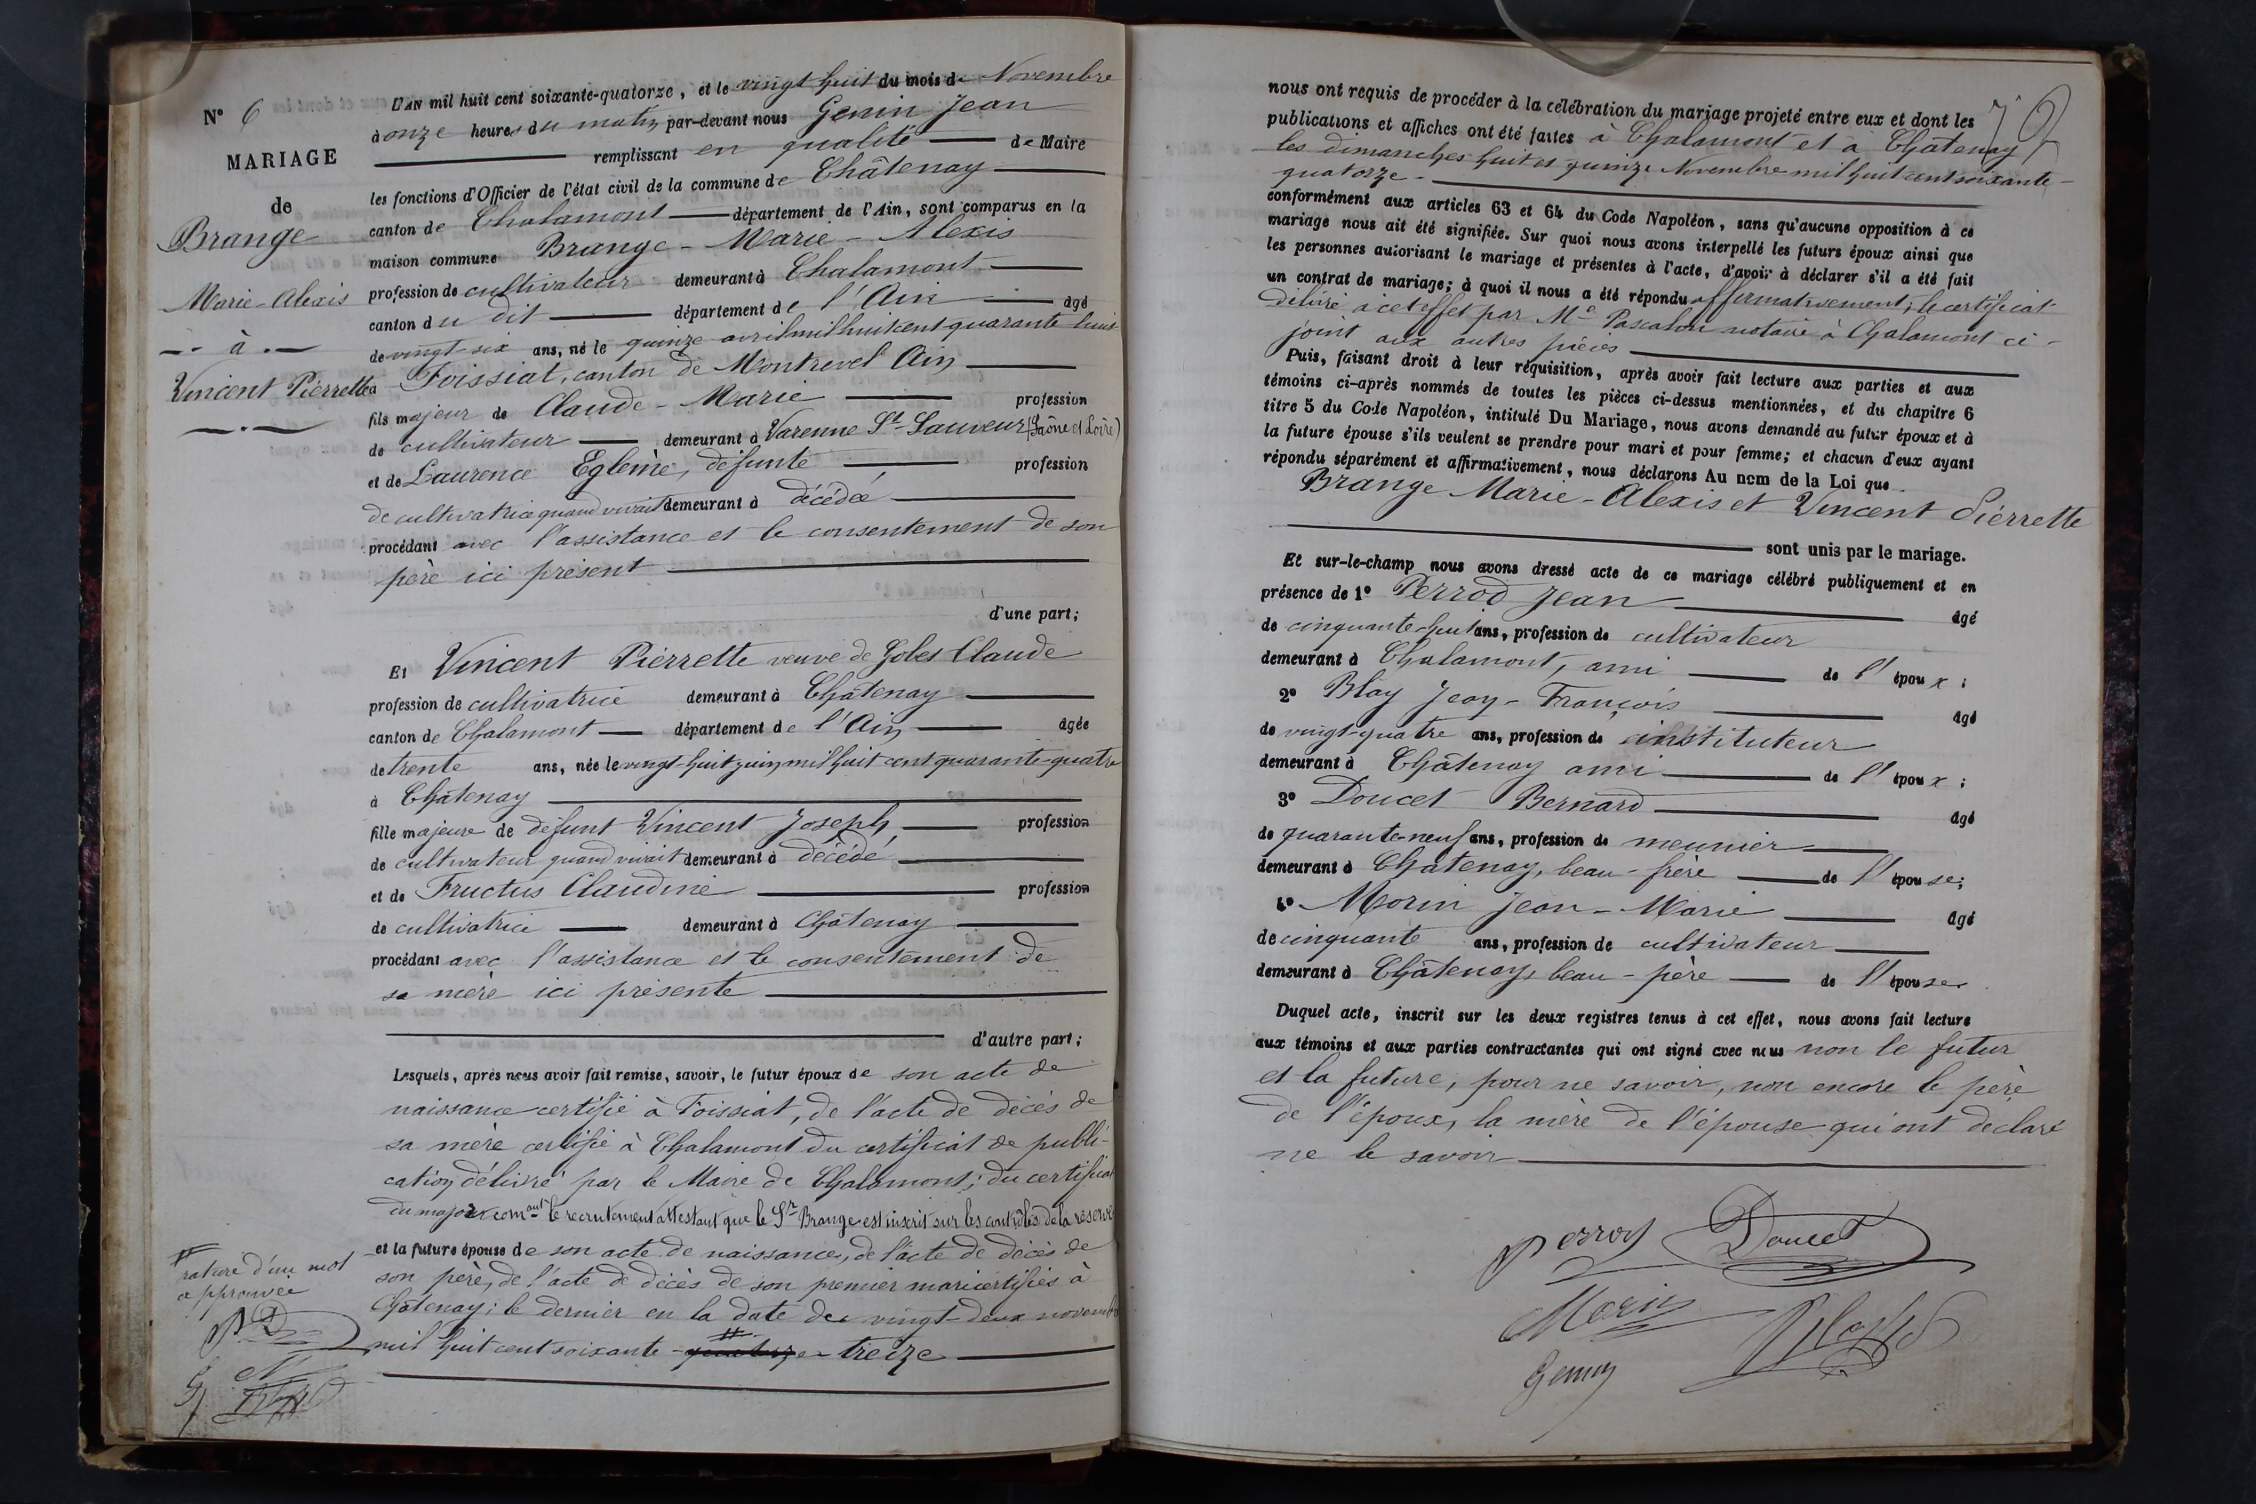 N° 6
MARIAGE
de
Brange
Marie-Alexis
à
Vincent Pierrette
L'AN mil huit cent soixante-quatorze, et le vingt huit du mois de Novembre
à onze heures du matin par-devant nous Genin Jean
remplissant en qualité de Maire
les fonctions d'Officier de l'état civil de la commune de Châtenay
canton de Chalamont département de l'Ain, sont comparus en la
maison commune Brange - Marie - Alexis
profession de cultivateur demeurant à Chalamont
canton du dit département de l'Ain âgé
de vingt-six ans, né le quinze avril mil huit cent quarante huit
à Foissiat, canton de Montrevel Ain
fils majeur de Claude-Marie profession
de cultivateur demeurant à Varenne St-Sauveur (Saône et Loire)
et de Laurence Eglenie, défunte profession
de cultivatrice quand vivait demeurant à décédée
procédant avec l'assistance et le consentement de son
père ici présent
d'une part;
Et Vincent Pierrette veuve de Goles Claude
profession de cultivatrice demeurant à Châtenay
canton de Chalamont département de l'Ain âgée
de trente ans, née le vingt-huit juin mil huit cent quarante-quatre
à Châtenay
fille majeure de défunt Vincent Joseph, profession
de cultivateur quand vivait demeurant à décédé
et de Fructus Claudine profession
de cultivatrice demeurant à Châtenay
procédant avec l'assistance et le consentement de
sa mère ici présente
d'autre part;
Lesquels, après nous avoir fait remise, savoir, le futur époux de son acte de
naissance certifié à Foissiat, de l'acte de décès de
sa mère certifié à Chalamont du certificat de publi-
cation délivré par le Maire de Chalamont; du certificat
du major comant le recrutement attestant que le Sr Brange est inscrit sur les contrôles de la réserve
et la future épouse de son acte de naissance, de l'acte de décès de
son père, de l'acte de décès de son premier mari certifiés à
Châtenay; le dernier en la date du vingt-deux novembre
mil huit cent soixante - quatorze - treize
rature d'un mot
approuvée
nous ont requis de procéder à la célébration du mariage projeté entre eux et dont les
publications et affiches ont été faites à Chalamont et à Châtenay
les dimanches huit et quinze Novembre mil huit cent soixante-
quatorze -
conformément aux articles 63 et 64 du Code Napoléon, sans qu'aucune opposition à ce
mariage nous ait été signifiée. Sur quoi nous avons interpellé les futurs époux ainsi que
les personnes autorisant le mariage et présentes à l'acte, d'avoir à déclarer s'il a été fait
un contrat de mariage; à quoi il nous a été répondu affirmativement; le certificat
délivré à cet effet par Me Pascalon notaire à Chalamont ci-
joint aux autres pièces
Puis, faisant droit à leur réquisition, après avoir fait lecture aux parties et aux
témoins ci-après nommés de toutes les pièces ci-dessus mentionnées, et du chapitre 6
titre 5 du Code Napoléon, intitulé Du Mariage, nous avons demandé au futur époux et à
la future épouse s'ils veulent se prendre pour mari et pour femme; et chacun d'eux ayant
répondu séparément et affirmativement, nous déclarons Au nom de la Loi que
Brange Marie-Alexis et Vincent Pierrette
sont unis par le mariage.
Et sur-le-champ nous avons dressé acte de ce mariage célébré publiquement et en
présence de 1° Perrod Jean âgé
de cinquante-huit ans, profession de cultivateur
demeurant à Chalamont, ami de l'époux;
2° Blay Jean-François âgé
de vingt-quatre ans, profession de instituteur
demeurant à Châtenay ami de l'époux;
3° Doucet Bernard âgé
de quarante-neuf ans, profession de meunier
demeurant à Châtenay, beau-frère de l'épouse;
4° Morin Jean-Marie âgé
de cinquante ans, profession de cultivateur
demeurant à Châtenay, beau-père de l'épouse
Duquel acte, inscrit sur les deux registres tenus à cet effet, nous avons fait lecture
aux témoins et aux parties contractantes qui ont signé avec nous non le futur
et la future, pour ne savoir, non encore le père
de l'époux, la mère de l'épouse qui ont déclaré
ne le savoir
Perrod Doucet
Morin
Genin